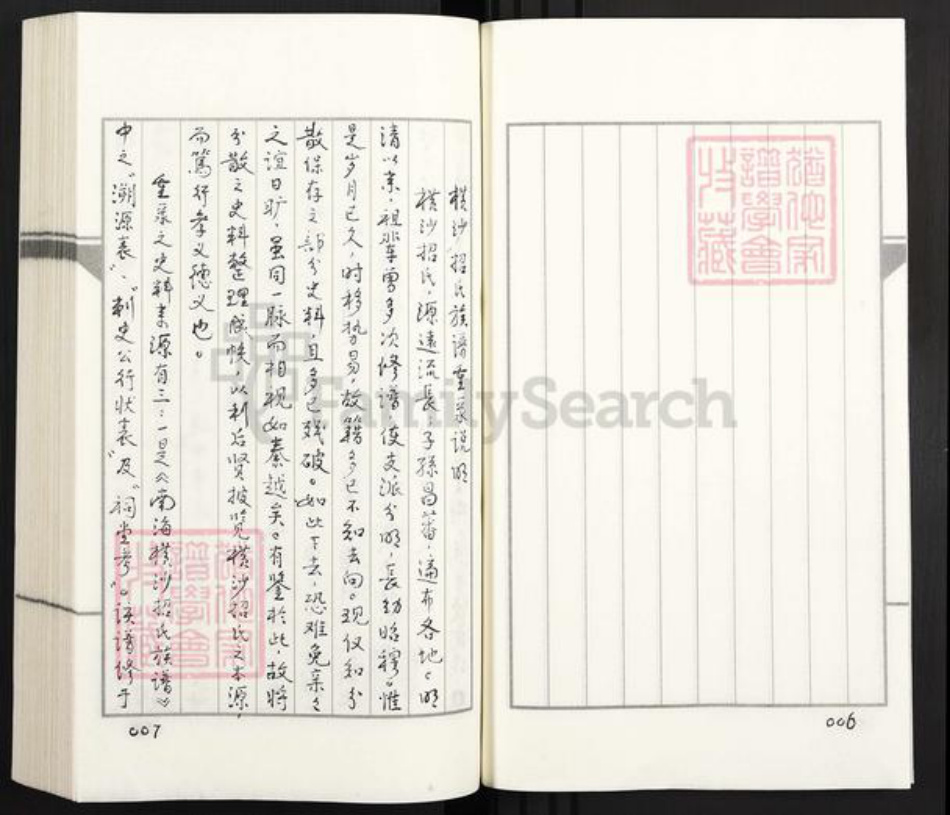 006
猶他家
譜學會
收藏
横沙招氏族谱重录说明
横沙招氏,源遠流長,子孫昌蕃,遍布各地。明
清以来,祖辈曾多次修谱,使支派分明,長幼昭穆。惟
是岁月已久,时移势易,故籍多已不知去向。现仅知分
散保存之部分史料,且多已残破。如此下去,恐难免亲亲
之谊日旷,虽同一脉而相視如秦越矣。有鉴於此,故將
分散之史料整理成帙,以利后贤披览横沙招氏之本源,
而篤行孝义德义也。
重录之史料来源有三:一是《南海横沙招氏族谱》
中之“溯源表”、“刺史公行状表”及“祠堂考”。该谱修于
猶他家
譜學會
收藏
007
FamilySearch